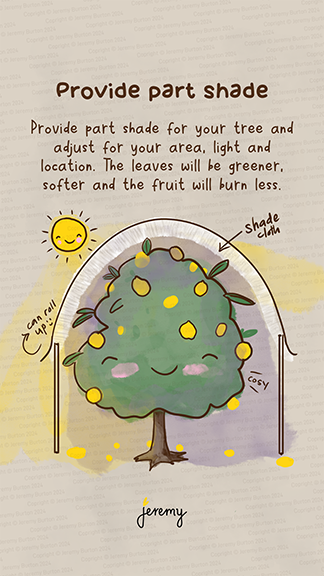 Provide part shade
Provide part shade for your tree and
adjust for your area, light and
location. The leaves will be greener,
softer and the fruit will burn less.
shade
cloth
can roll
up
cosy
jeremy